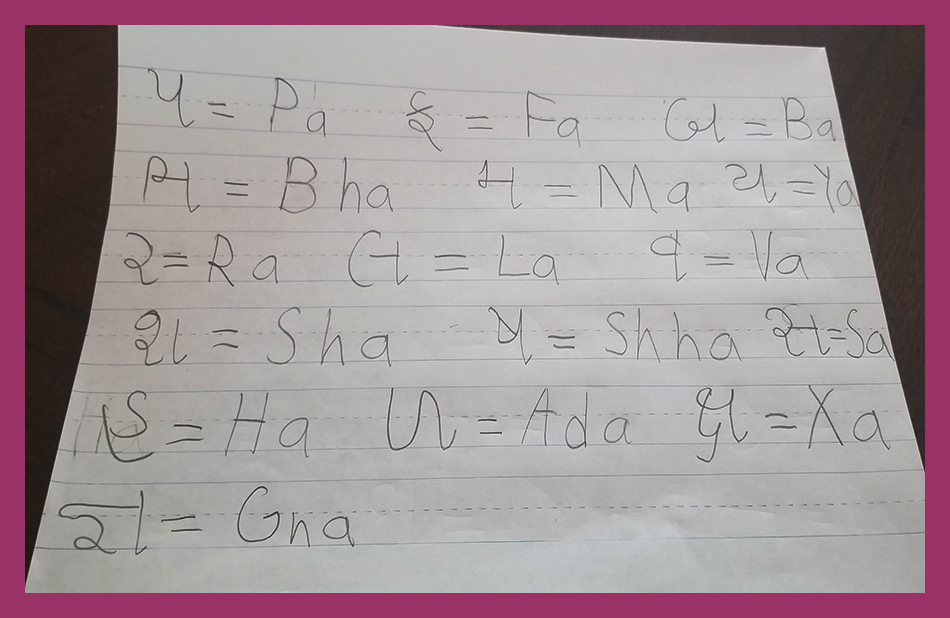 પ = Pa ફ = Fa બ = Ba
ભ = Bha મ = Ma ય = Ya
ર = Ra લ = La વ = Va
શ = Sha ષ = Shha સ = Sa
હ = Ha ળ = Ada ક્ષ = Xa
જ્ઞ = Gna